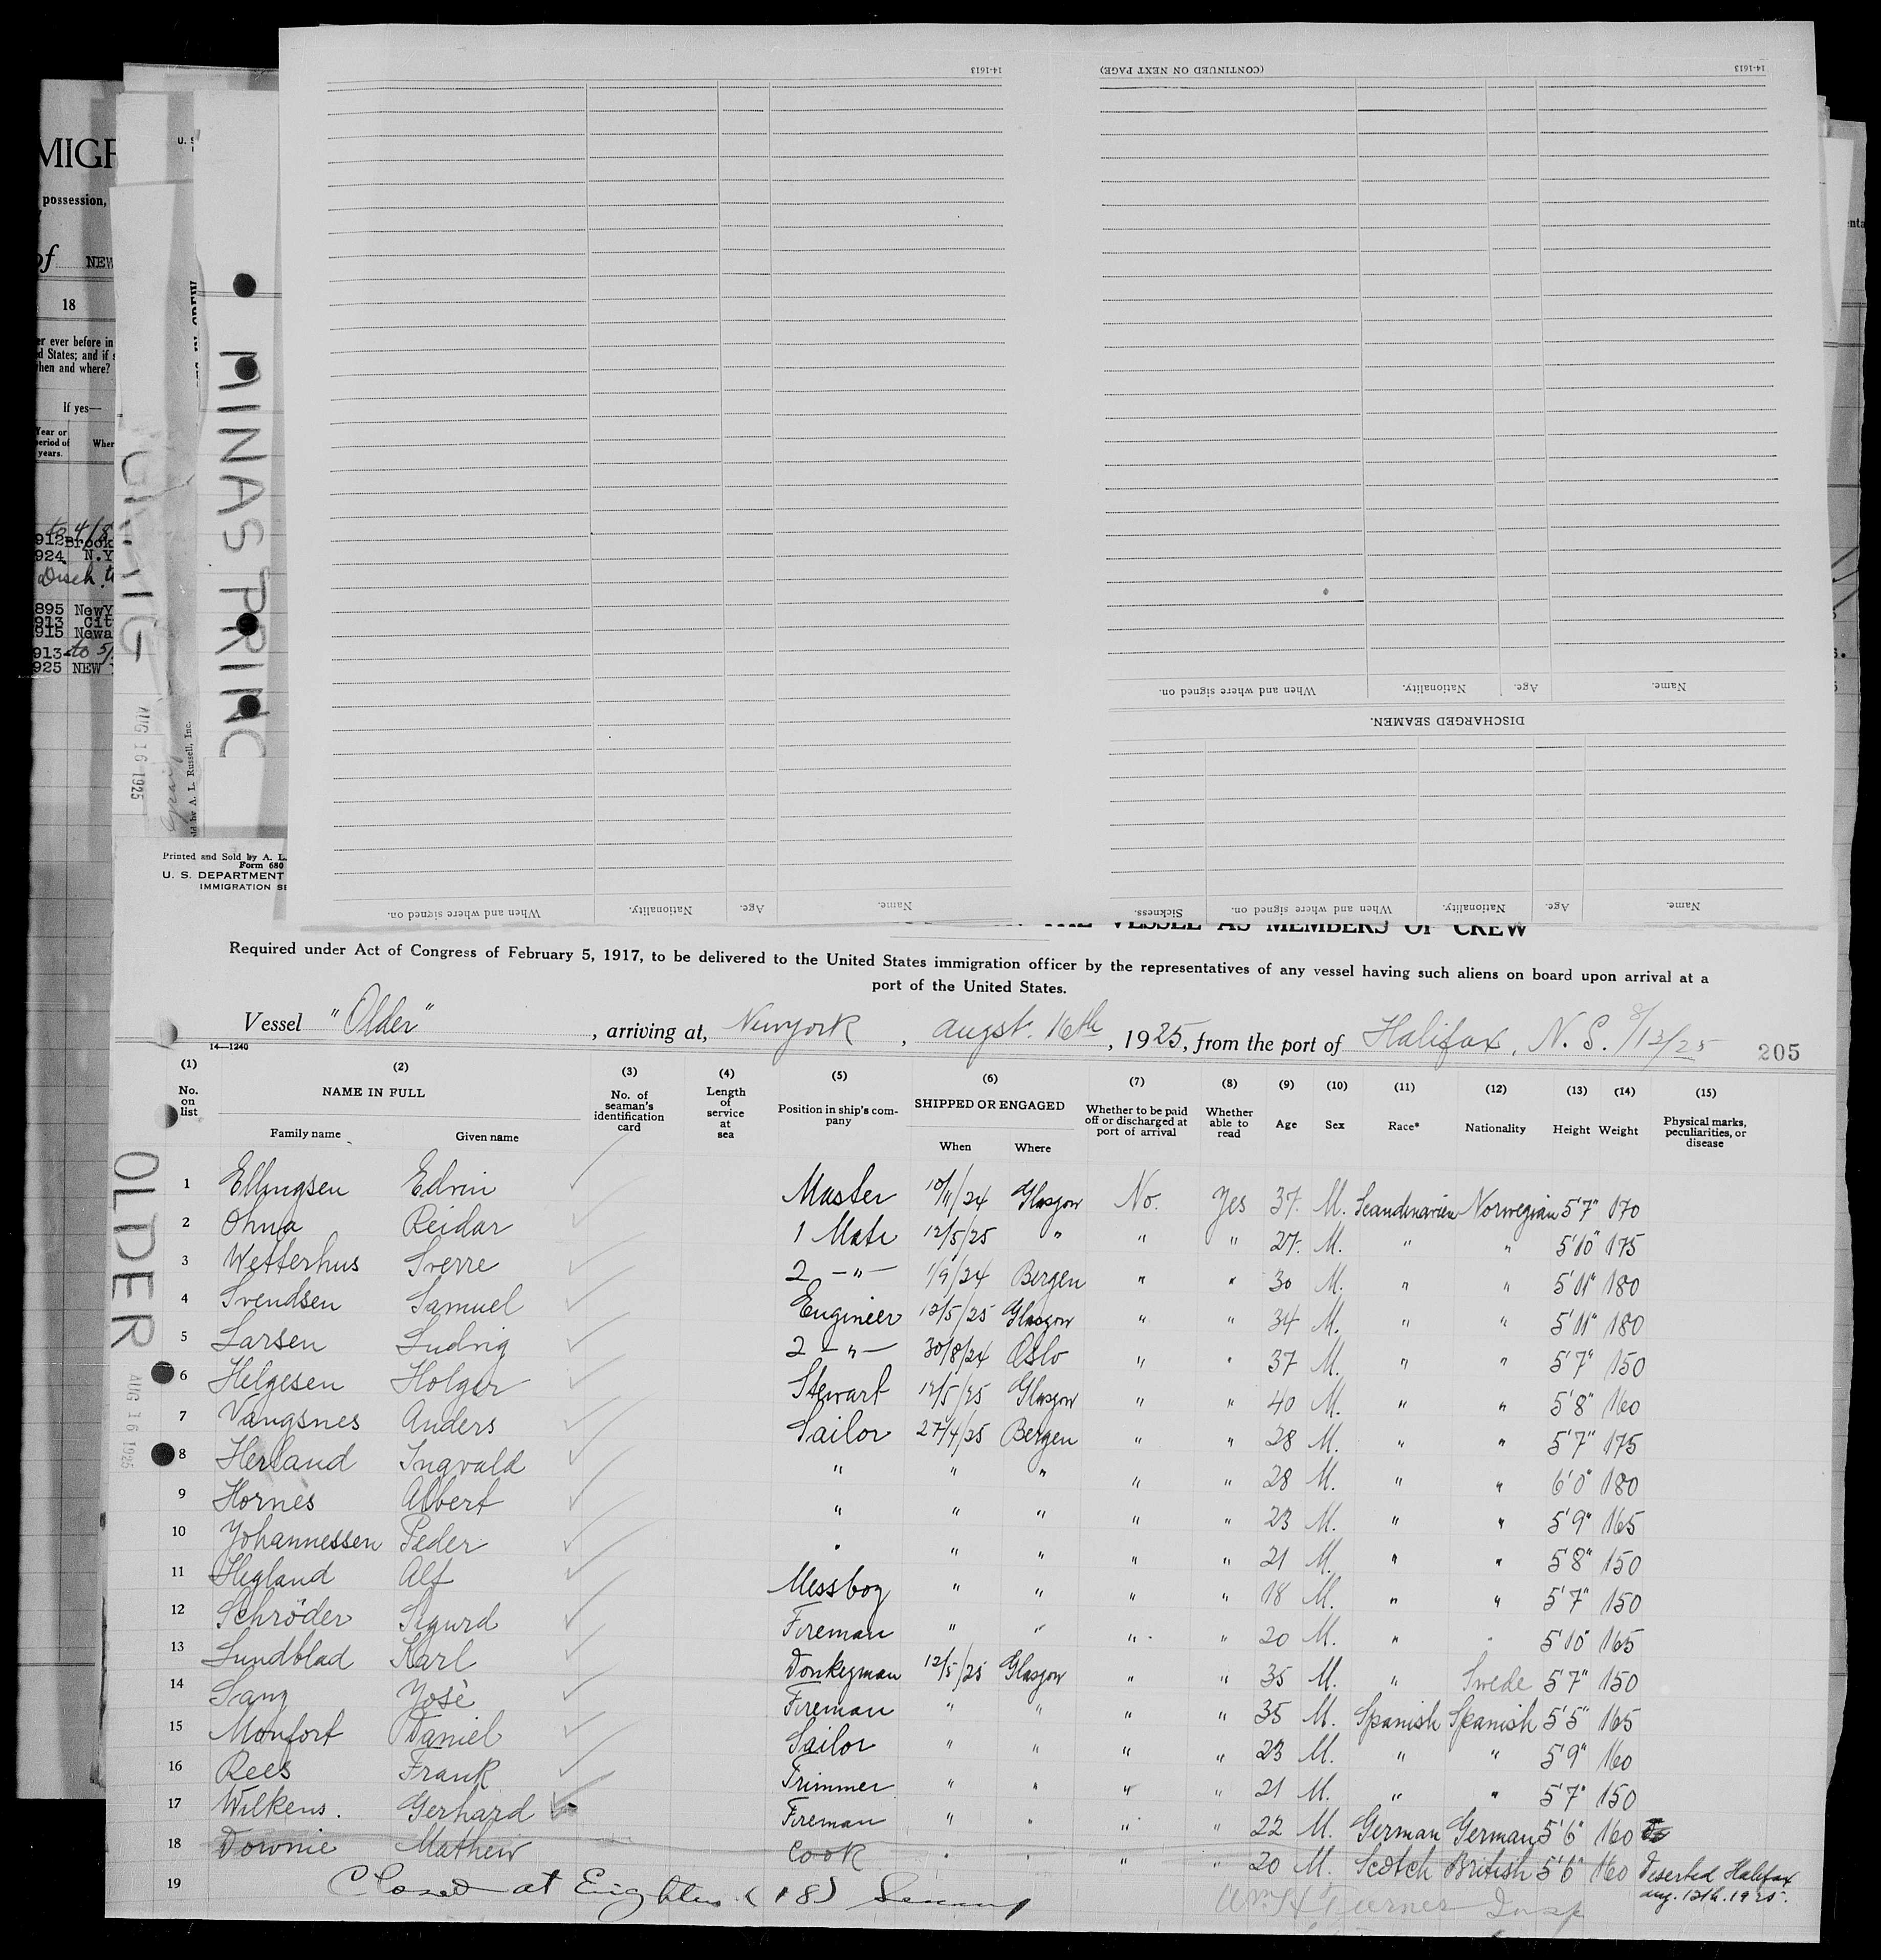 MIGR
possession,
of NEW
18
er ever before in
d States; and if s
hen and where?
If yes—
Year or
period of
years.
Wher
to 4/8
912-Brook
924 N.Y
Disch. to
895 NewY
913 Cit
915 Newa
913-to 5/
925 NEW
AUG 16 1925
ld by A. L. Russell, Inc.
MINAS PRINC
14-1613
(CONTINUED ON NEXT PAGE)
14-1613
When and where signed on. Nationality. Age. Name.
DISCHARGED SEAMEN.
When and where signed on. Nationality. Age. Name.
Sickness. When and where signed on. Nationality. Age. Name.
Printed and Sold by A. L.
Form 680
U. S. DEPARTMENT
IMMIGRATION SE
THE VESSEL AS MEMBERS OF CREW
Required under Act of Congress of February 5, 1917, to be delivered to the United States immigration officer by the representatives of any vessel having such aliens on board upon arrival at a
port of the United States.
Vessel "Older", arriving at, Newyork, augst. 16th, 1925, from the port of Halifax, N. S. 8/12/25
14—1240
205
(1) (2) (3) (4) (5) (6) (7) (8) (9) (10) (11) (12) (13) (14) (15)
No. on list NAME IN FULL No. of seaman's identification card Length of service at sea Position in ship's company SHIPPED OR ENGAGED Whether to be paid off or discharged at port of arrival Whether able to read Age Sex Race* Nationality Height Weight Physical marks, peculiarities, or disease
Family name Given name When Where
OLDER
AUG 16 1925
1 Ellingsen Edvin Master 10/11/24 Glasgow No. Yes 37. M. Scandinavien Norwegian 5'7" 170
2 Ohna Reidar 1 Mate 12/5/25 " " " 27. M. " " 5'10" 175
3 Wetterhus Sverre 2 -"- 1/9/24 Bergen " " 30 M. " " 5'11" 180
4 Svendsen Samuel Engineer 12/5/25 Glasgow " " 34 M. " " 5'11" 180
5 Larsen Ludvig 2 -"- 30/8/24 Oslo " " 37 M. " " 5'7" 150
6 Helgesen Holger Stewart 12/5/25 Glasgow " " 40 M. " " 5'8" 160
7 Vangsnes Anders Sailor 27/4/25 Bergen " " 28 M. " " 5'7" 175
8 Herland Ingvald " " " " " 28 M. " " 6'0" 180
9 Hornes Albert " " " " " 23 M. " " 5'9" 165
10 Yohannessen Peder " " " " " 21 M. " " 5'8" 150
11 Hegland Alf Messboy " " " " 18 M. " " 5'7" 150
12 Schröder Sigurd Fireman " " " " 20 M. " " 5'10" 165
13 Lundblad Karl Donkeyman 12/5/25 Glasgow " " 35 M. " Swede 5'7" 150
14 Sanz Yosè Fireman " " " " 35 M. Spanish Spanish 5'5" 165
15 Monfort Daniel Sailor " " " " 23 M. " " 5'9" 160
16 Rees Frank Trimmer " " " " 21 M. " " 5'7" 150
17 Wilkens. Gerhard Fireman " " " " 22 M. German German 5'6" 160
18 Downie Mathew Cook " " " " 20 M. Scotch British 5'6" 160 Deserted Halifax
aug. 12th. 1925.
19 Closed at Eighteen (18) Seaman
Wm H Turner Insp